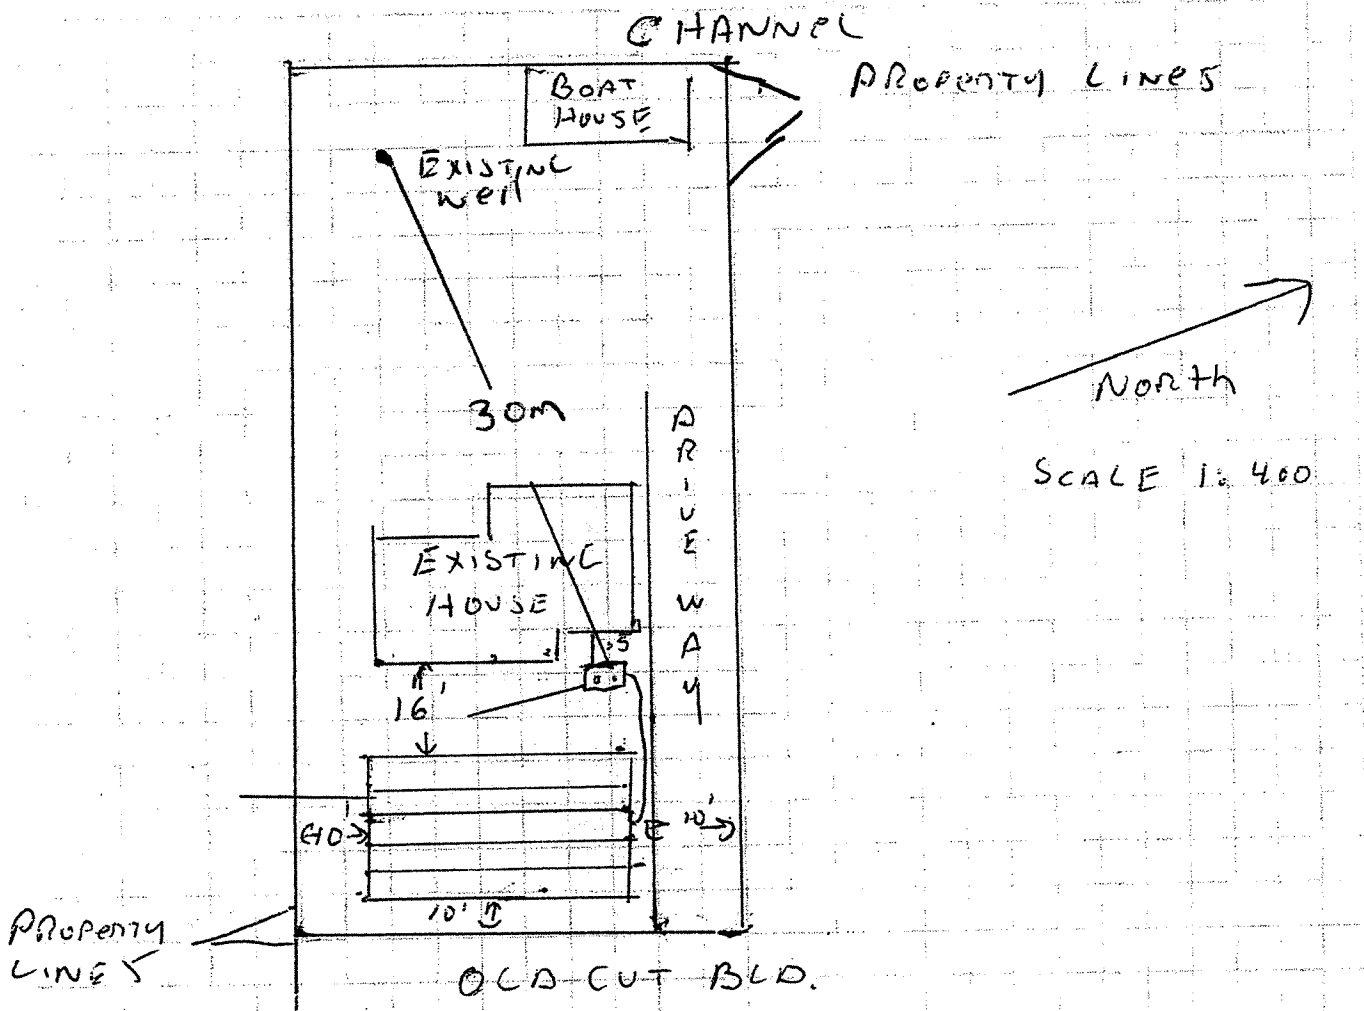 CHANNEL
PROPERTY LINES
BOAT
HOUSE
EXISTING
Well
30m
NORTH
SCALE 1:400
DRIVE WAY
EXISTING
HOUSE
.5
16'
10'
10'
10'
PROPERTY
LINES
OLD CUT BLD.